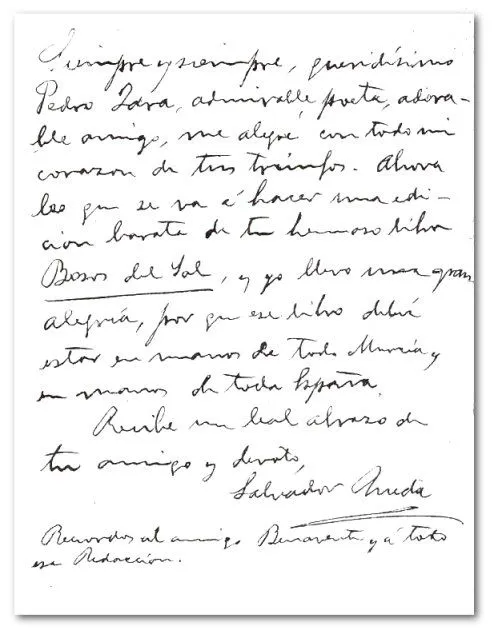 Siempre y siempre, queridísimo
Pedro Jara, admirable poeta, adora-
ble amigo, me alegré con todo mi
corazon de tus triunfos. Ahora
leo que se va á hacer una edi-
ción barata de tu hermoso libro
Besos del Sol, y yo llevo una gran
alegría, por que ese libro debía
estar en manos de toda Murcia y
en manos de toda España.
Recibe un leal abrazo de
tu amigo y devoto,
Salvador Rueda
Recuerdos al amigo Benavente y á toda
esa Redacción.